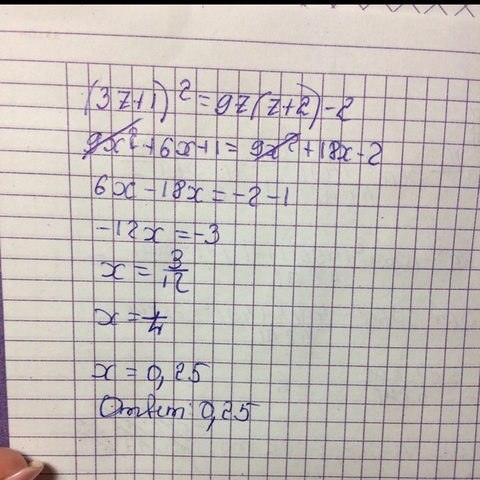 (3z+1)² = 9z(z+2)-2
9x²+6x+1 = 9x²+18x-2
6x-18x = -2-1
-12x = -3
x = 3/12
x = 1/4
x = 0,25
Ответ: 0,25